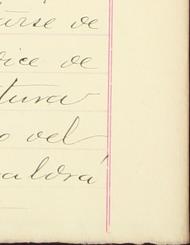 urse de
ice de
tura
o vel
aldrá